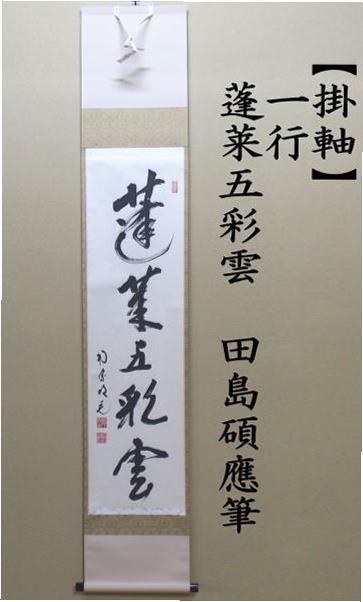 【掛軸】
一行
蓬莱五彩雲　田島碩應筆
蓬莱五彩雲